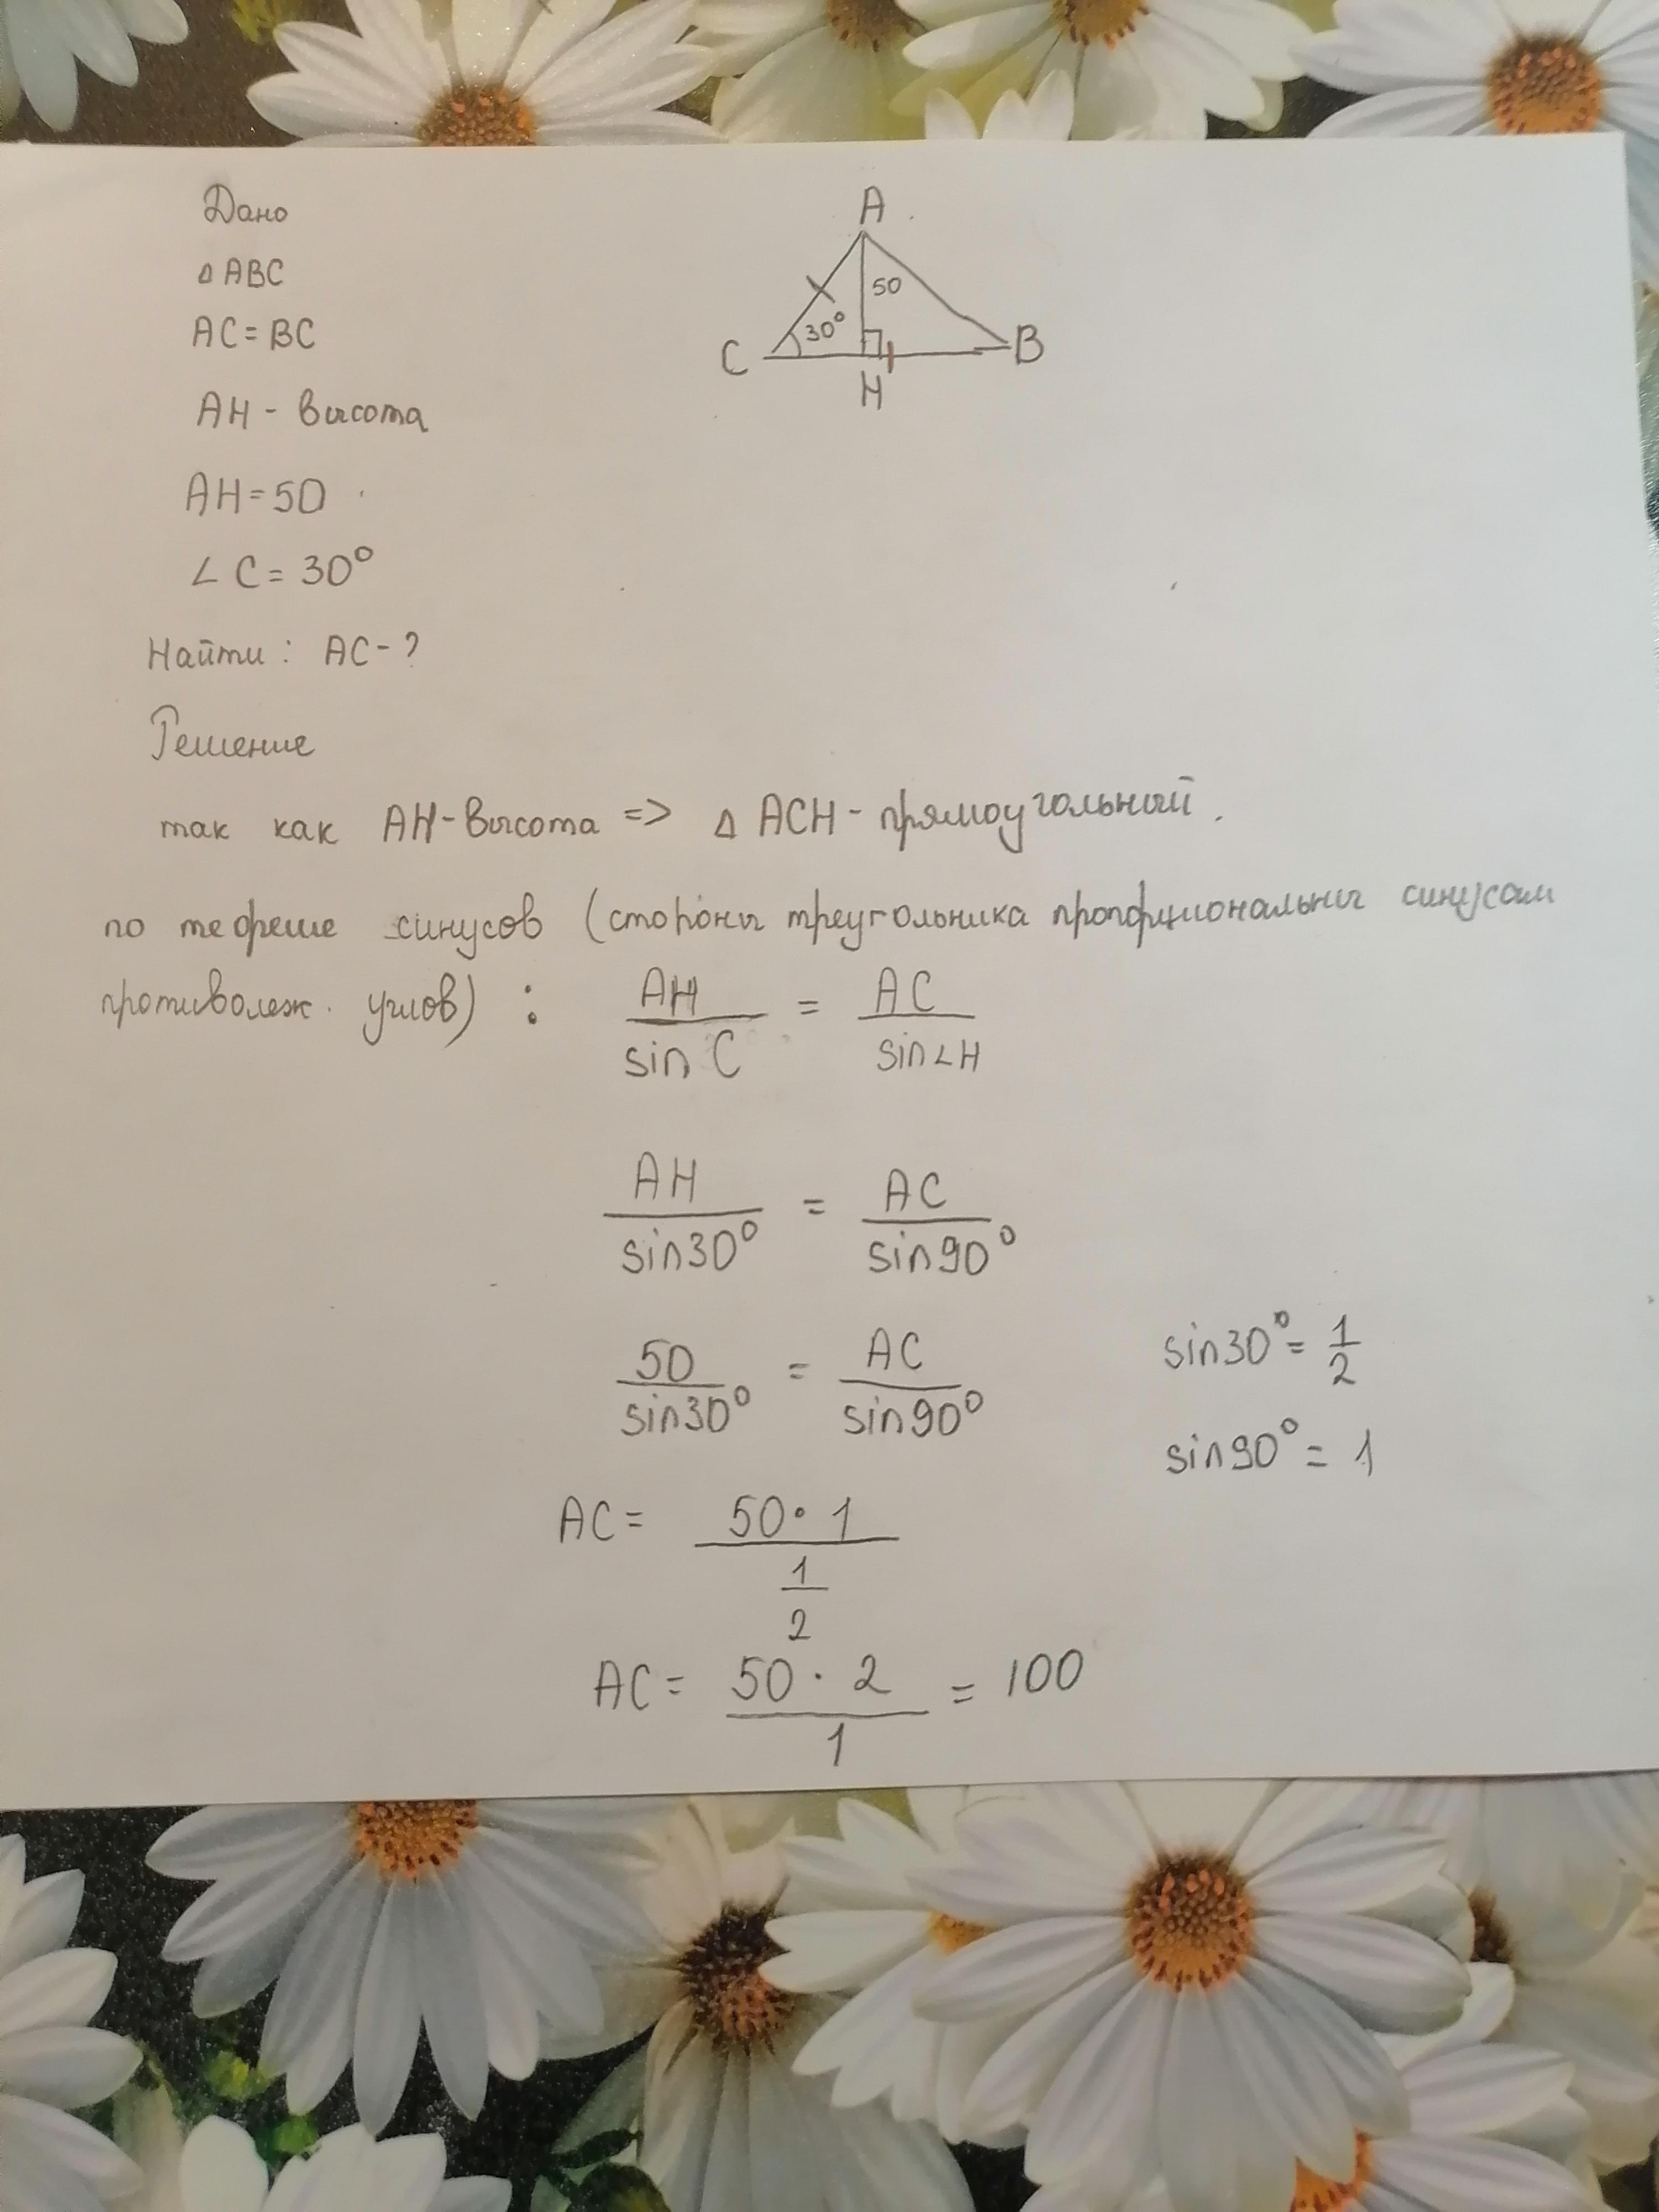 Дано
△ ABC
AC = BC
AH - высота
AH = 50
∠ C = 30°
Найти : AC - ?
A
50
30°
C
H
B
Решение
так как AH - высота => △ ACH - прямоугольный.
по теореме синусов (стороны треугольника пропорциональны синусам
противолеж. углов) :
AH / sin C = AC / sin∠H
AH / sin30° = AC / sin90°
50 / sin30° = AC / sin90°
sin30° = 1/2
sin90° = 1
AC = 50 · 1 / 1/2
AC = 50 · 2 / 1 = 100